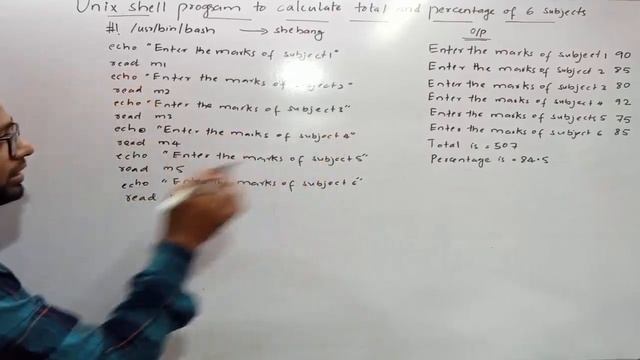 Unix shell program to calculate total and percentage of 6 subjects
#! /usr/bin/bash → shebang
echo "Enter the marks of subject1"
read m1
echo "Enter the marks of subject2"
read m2
echo "Enter the marks of subject3"
read m3
echo "Enter the marks of subject4"
read m4
echo "Enter the marks of subject5"
read m5
echo "Enter the marks of subject6"
read
O/P
Enter the marks of subject 1 90
Enter the marks of subject 2 85
Enter the marks of subject 3 80
Enter the marks of subject 4 92
Enter the marks of subject 5 75
Enter the marks of subject 6 85
Total is = 507
Percentage is = 84.5